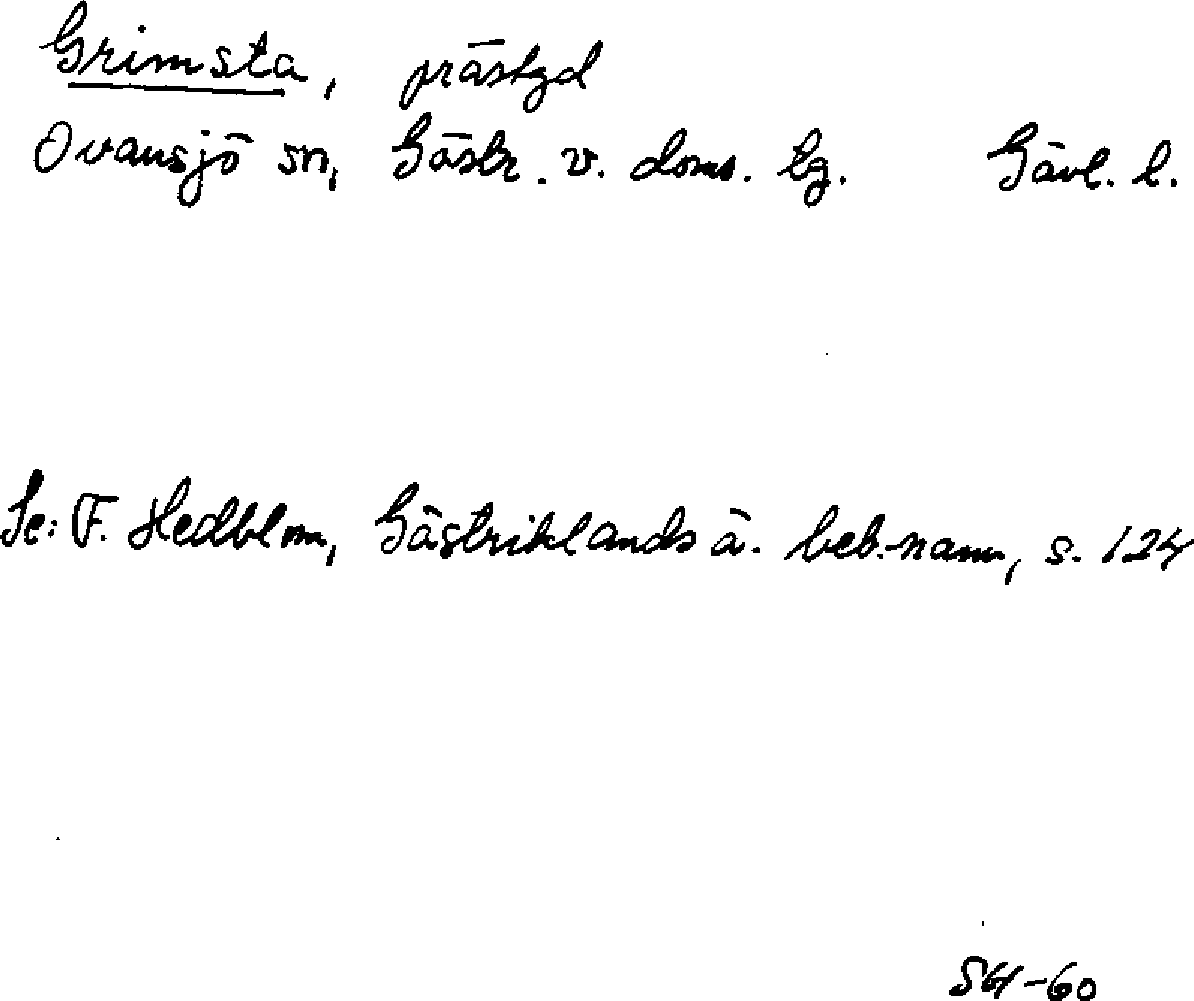 Grimsta, prästgd
Ovansjö sn, Gästr. v. doms. tg. Gävl. l.
Se: F. Hedblom, Gästriklands ä. beb.-namn, s. 124
SH-60